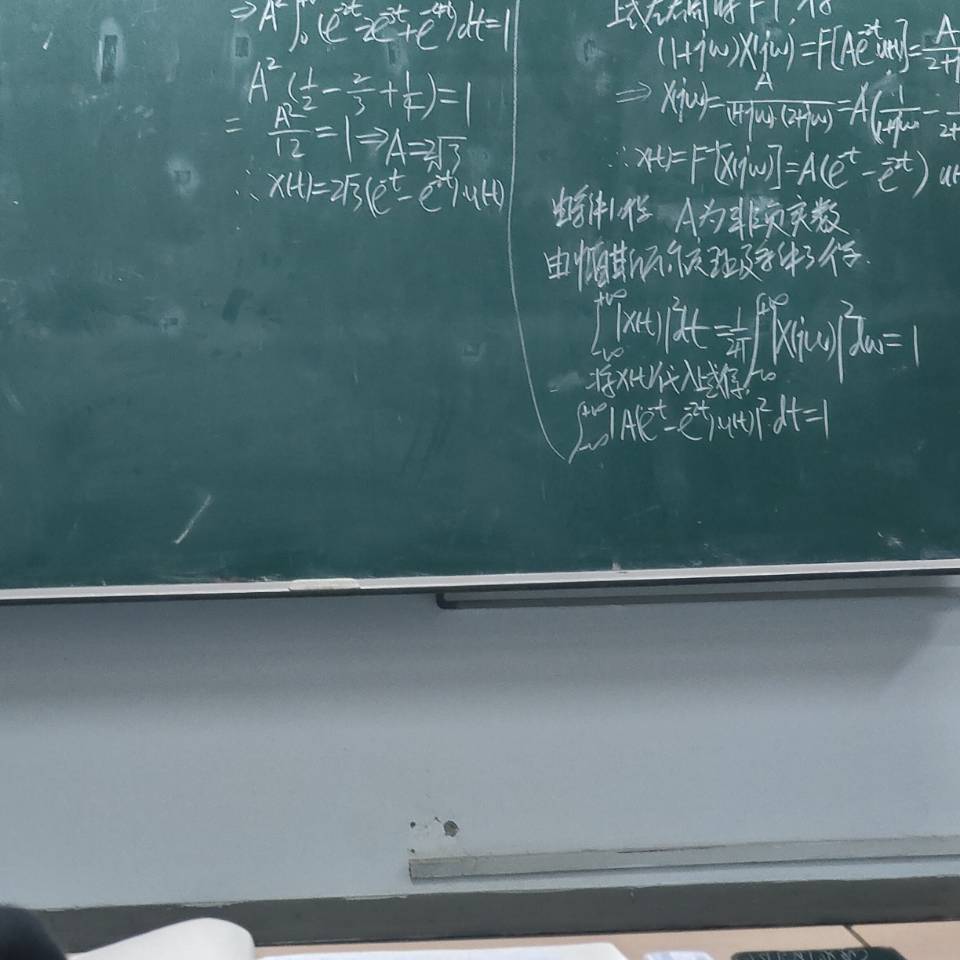 ⇒A²∫₀^{+∞}(e^{-2t}-2e^{-3t}+e^{-4t})dt=1
A²(1/2-2/3+1/4)=1
= A²/12=1⇒A=2√3
∴x(t)=2√3(e^{-t}-e^{-2t})u(t)
上式左右同时FT,得
(1+jω)X(jω)=F[Ae^{-2t}u(t)]=A/2+j
⇒X(jω)=A/(1+jω)(2+jω)=A(1/1+jω-1/2+
∴x(t)=F^{-1}[X(jω)]=A(e^{-t}-e^{-2t})u(t
由条件1得 A为非负实数
由帕斯瓦尔定理及条件3得
∫_{-∞}^{+∞}|x(t)|²dt=1/2π∫_{-∞}^{+∞}|X(jω)|²dω=1
将x(t)代入上式得
∫_{-∞}^{+∞}|A(e^{-t}-e^{-2t})u(t)|²dt=1